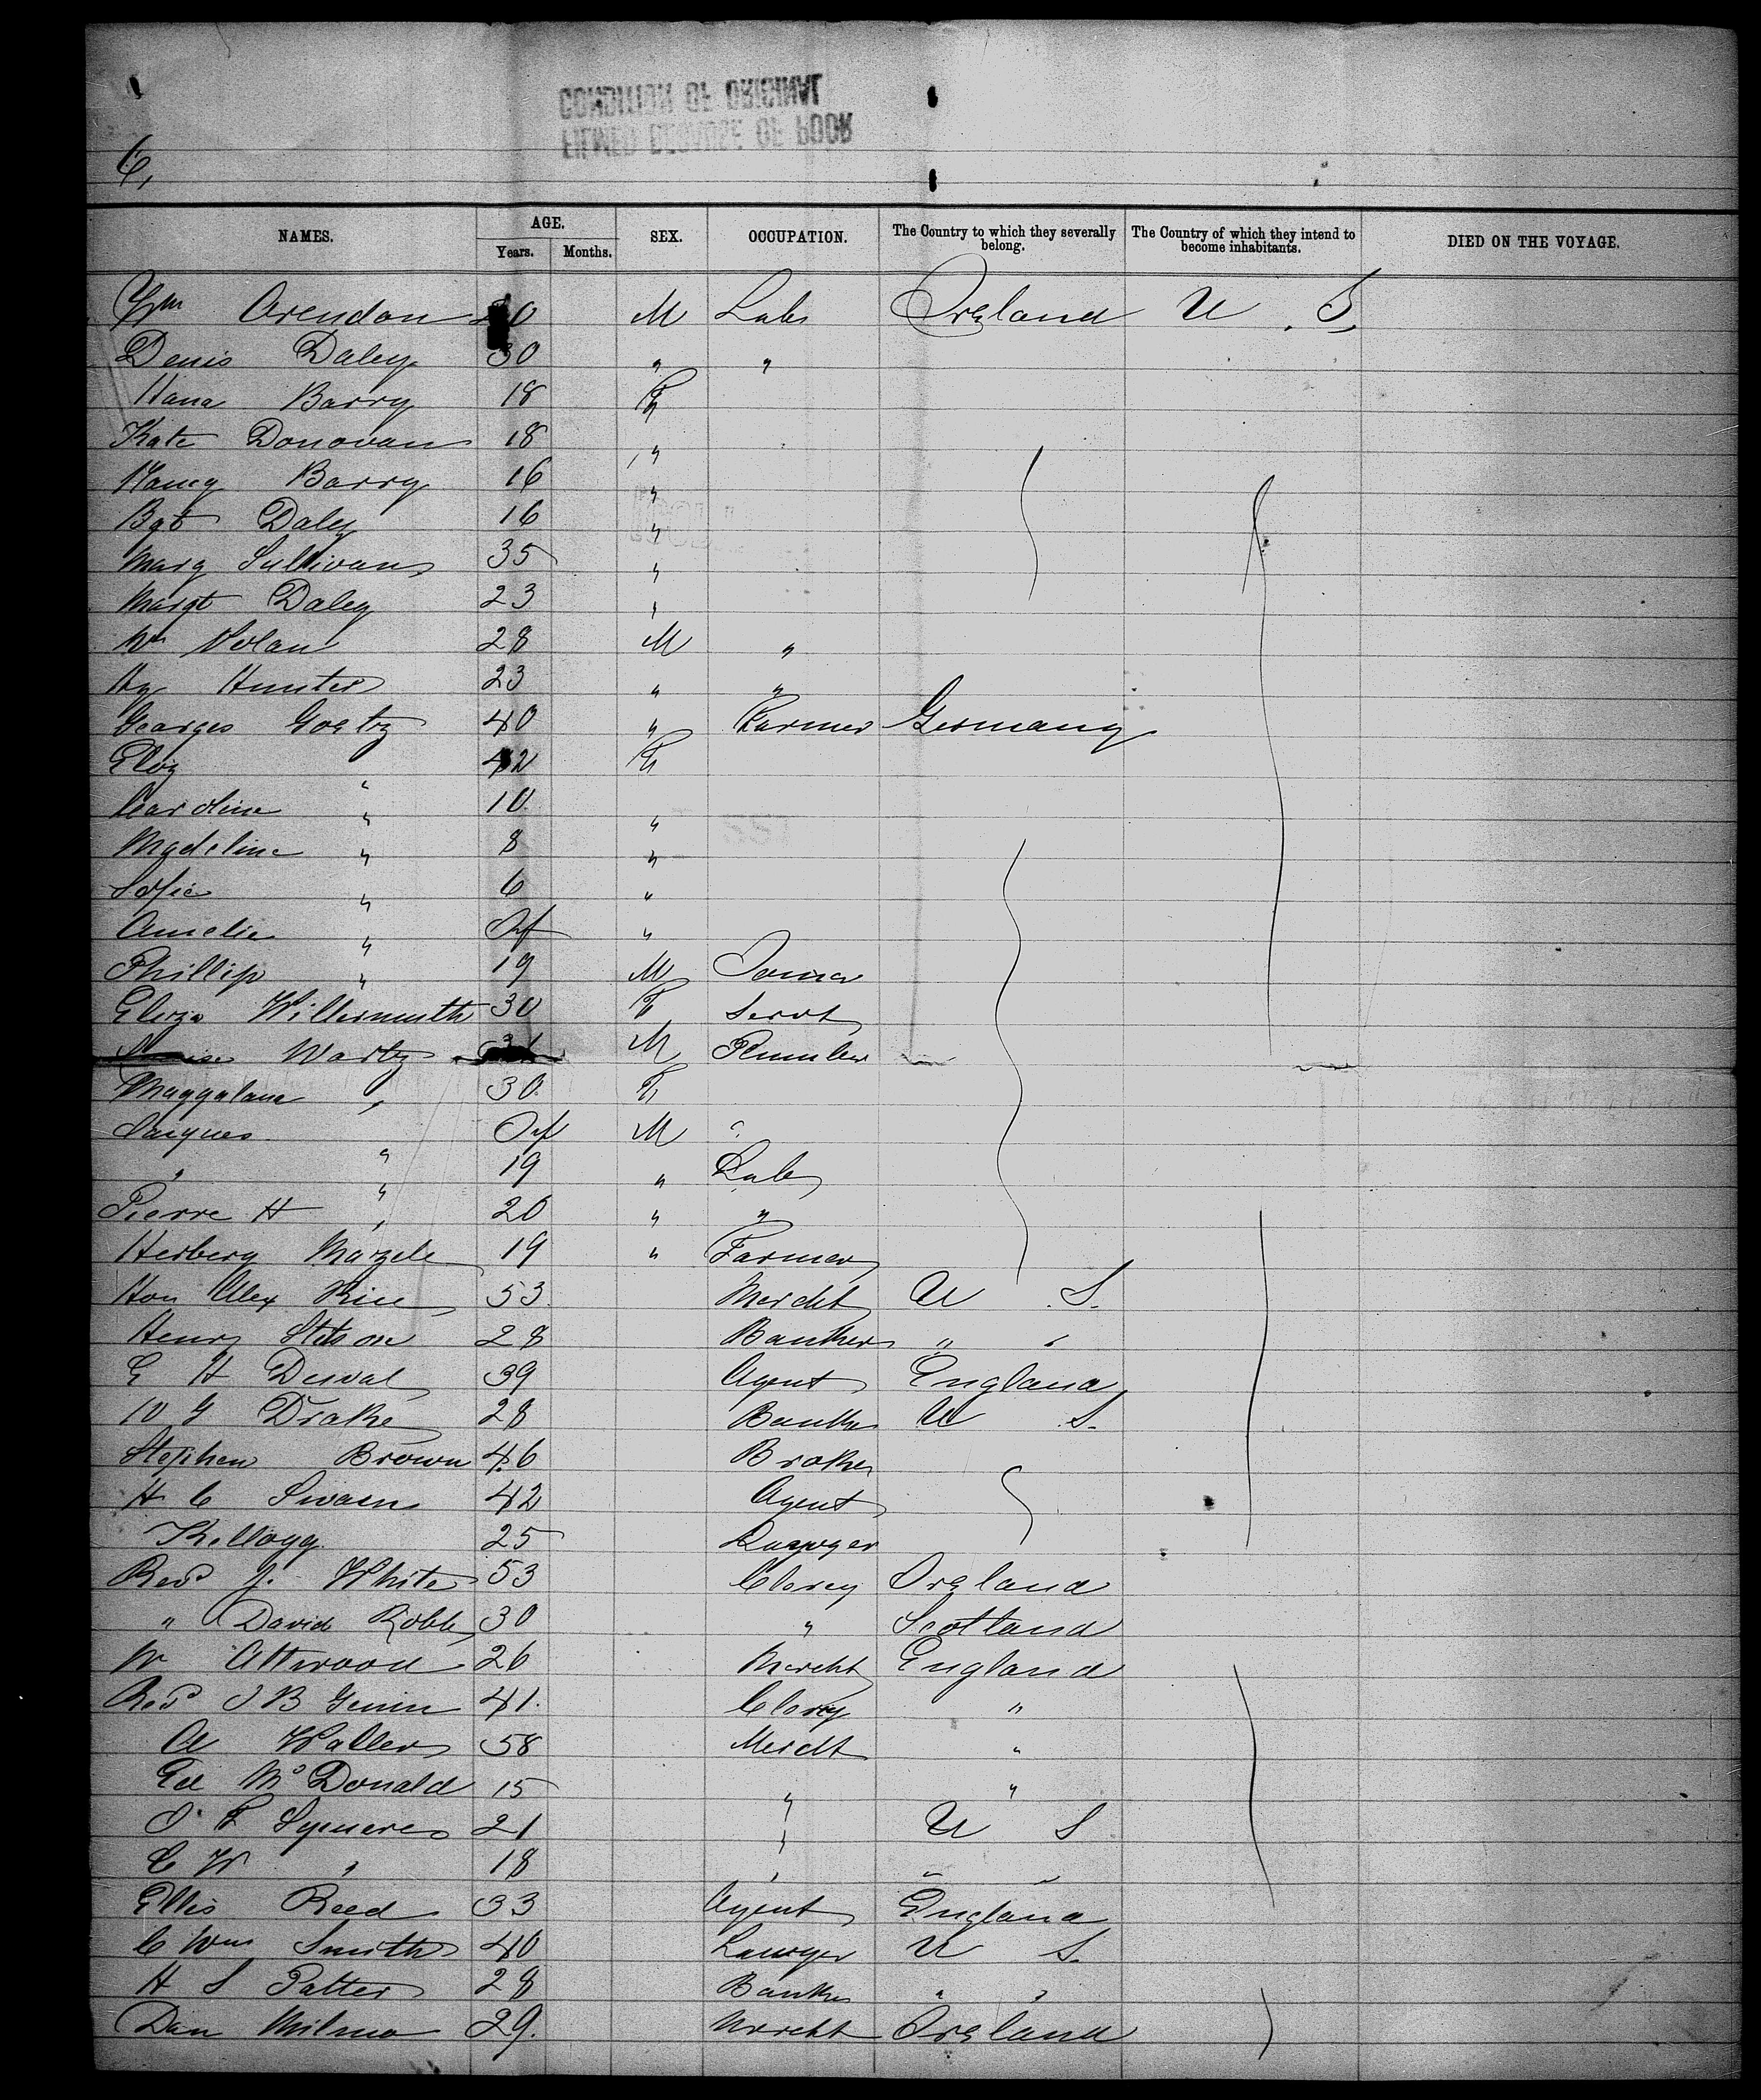 CONDITION OF ORIGINAL
FILMED BECAUSE OF POOR
6,
NAMES. AGE. SEX. OCCUPATION. The Country to which they severally belong. The Country of which they intend to become inhabitants. DIED ON THE VOYAGE.
Years. Months.
Wm Arendon 0 M Labr Ireland U . S.
Denis Daley 30 " "
Hana Barry 18 F
Kate Donovan 18 "
Nancy Barry 16 "
Bgt Daley 16 "
Mary Sullivan 35 "
Margt Daley 23 "
Wm Nolan 28 M "
Hy Hunter 23 " "
Georges Goetz 40 " Farmer Germany
Eliz " 42 F
Caroline " 10 "
Madeline " 8 "
Sofie " 6 "
Amelie " Inf "
Phillip " 19 M
Eliza Willermuth 30 F Servt
Wartz M Plumber
Maggalana " 30 F
Jacques " Inf M "
" " 19 " Lab
Pierre H " 20 " "
Herberg Marzele 19 " Farmer
Hon Alex Rice 53 Mercht U . S.
Henry Stetson 28 Banker " "
E H Duval 39 Agent England
W G Drake 28 Banker U S.
Stephen Brown 46 Broker
H C Swain 42 Agent
Kellogg 25 Lawyer
Revd J. White 53 Clergy Ireland
" David Robb 30 " Scotland
W Attwood 26 Mercht England
Revd J B 41. Clergy "
A Waller 58 Mercht "
Ed McDonald 15 " "
J F Squires 21 " U S
C W " 18 " " "
Ellis Reed 33 Agent England
C Wm Smith 40 Lawyer U S.
H S Potter 28 Banker " "
Dan Milmo 29. Mercht Ireland